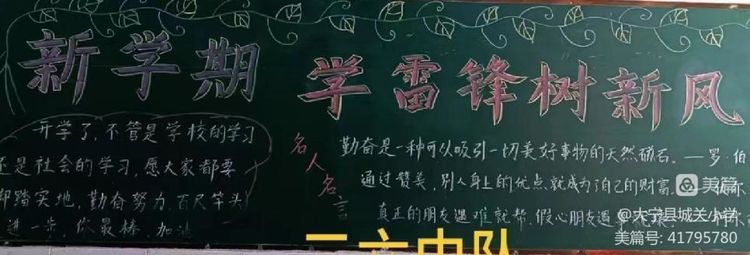 新学期
学雷锋树新风
开学了,不管是学校的学习
还是社会的学习,愿大家都要
脚踏实地,勤奋努力,百尺竿头
进一步,你最棒,加油
名人名言
勤奋是一种可以吸引一切美好事物的天然磁石。—罗·伯
通过赞美,别人身上的优点就成为了自己的财富。
真正的朋友遇难就帮,假心朋友遇
二六中队
美篇
@大宁县城关小学
美篇号: 41795780